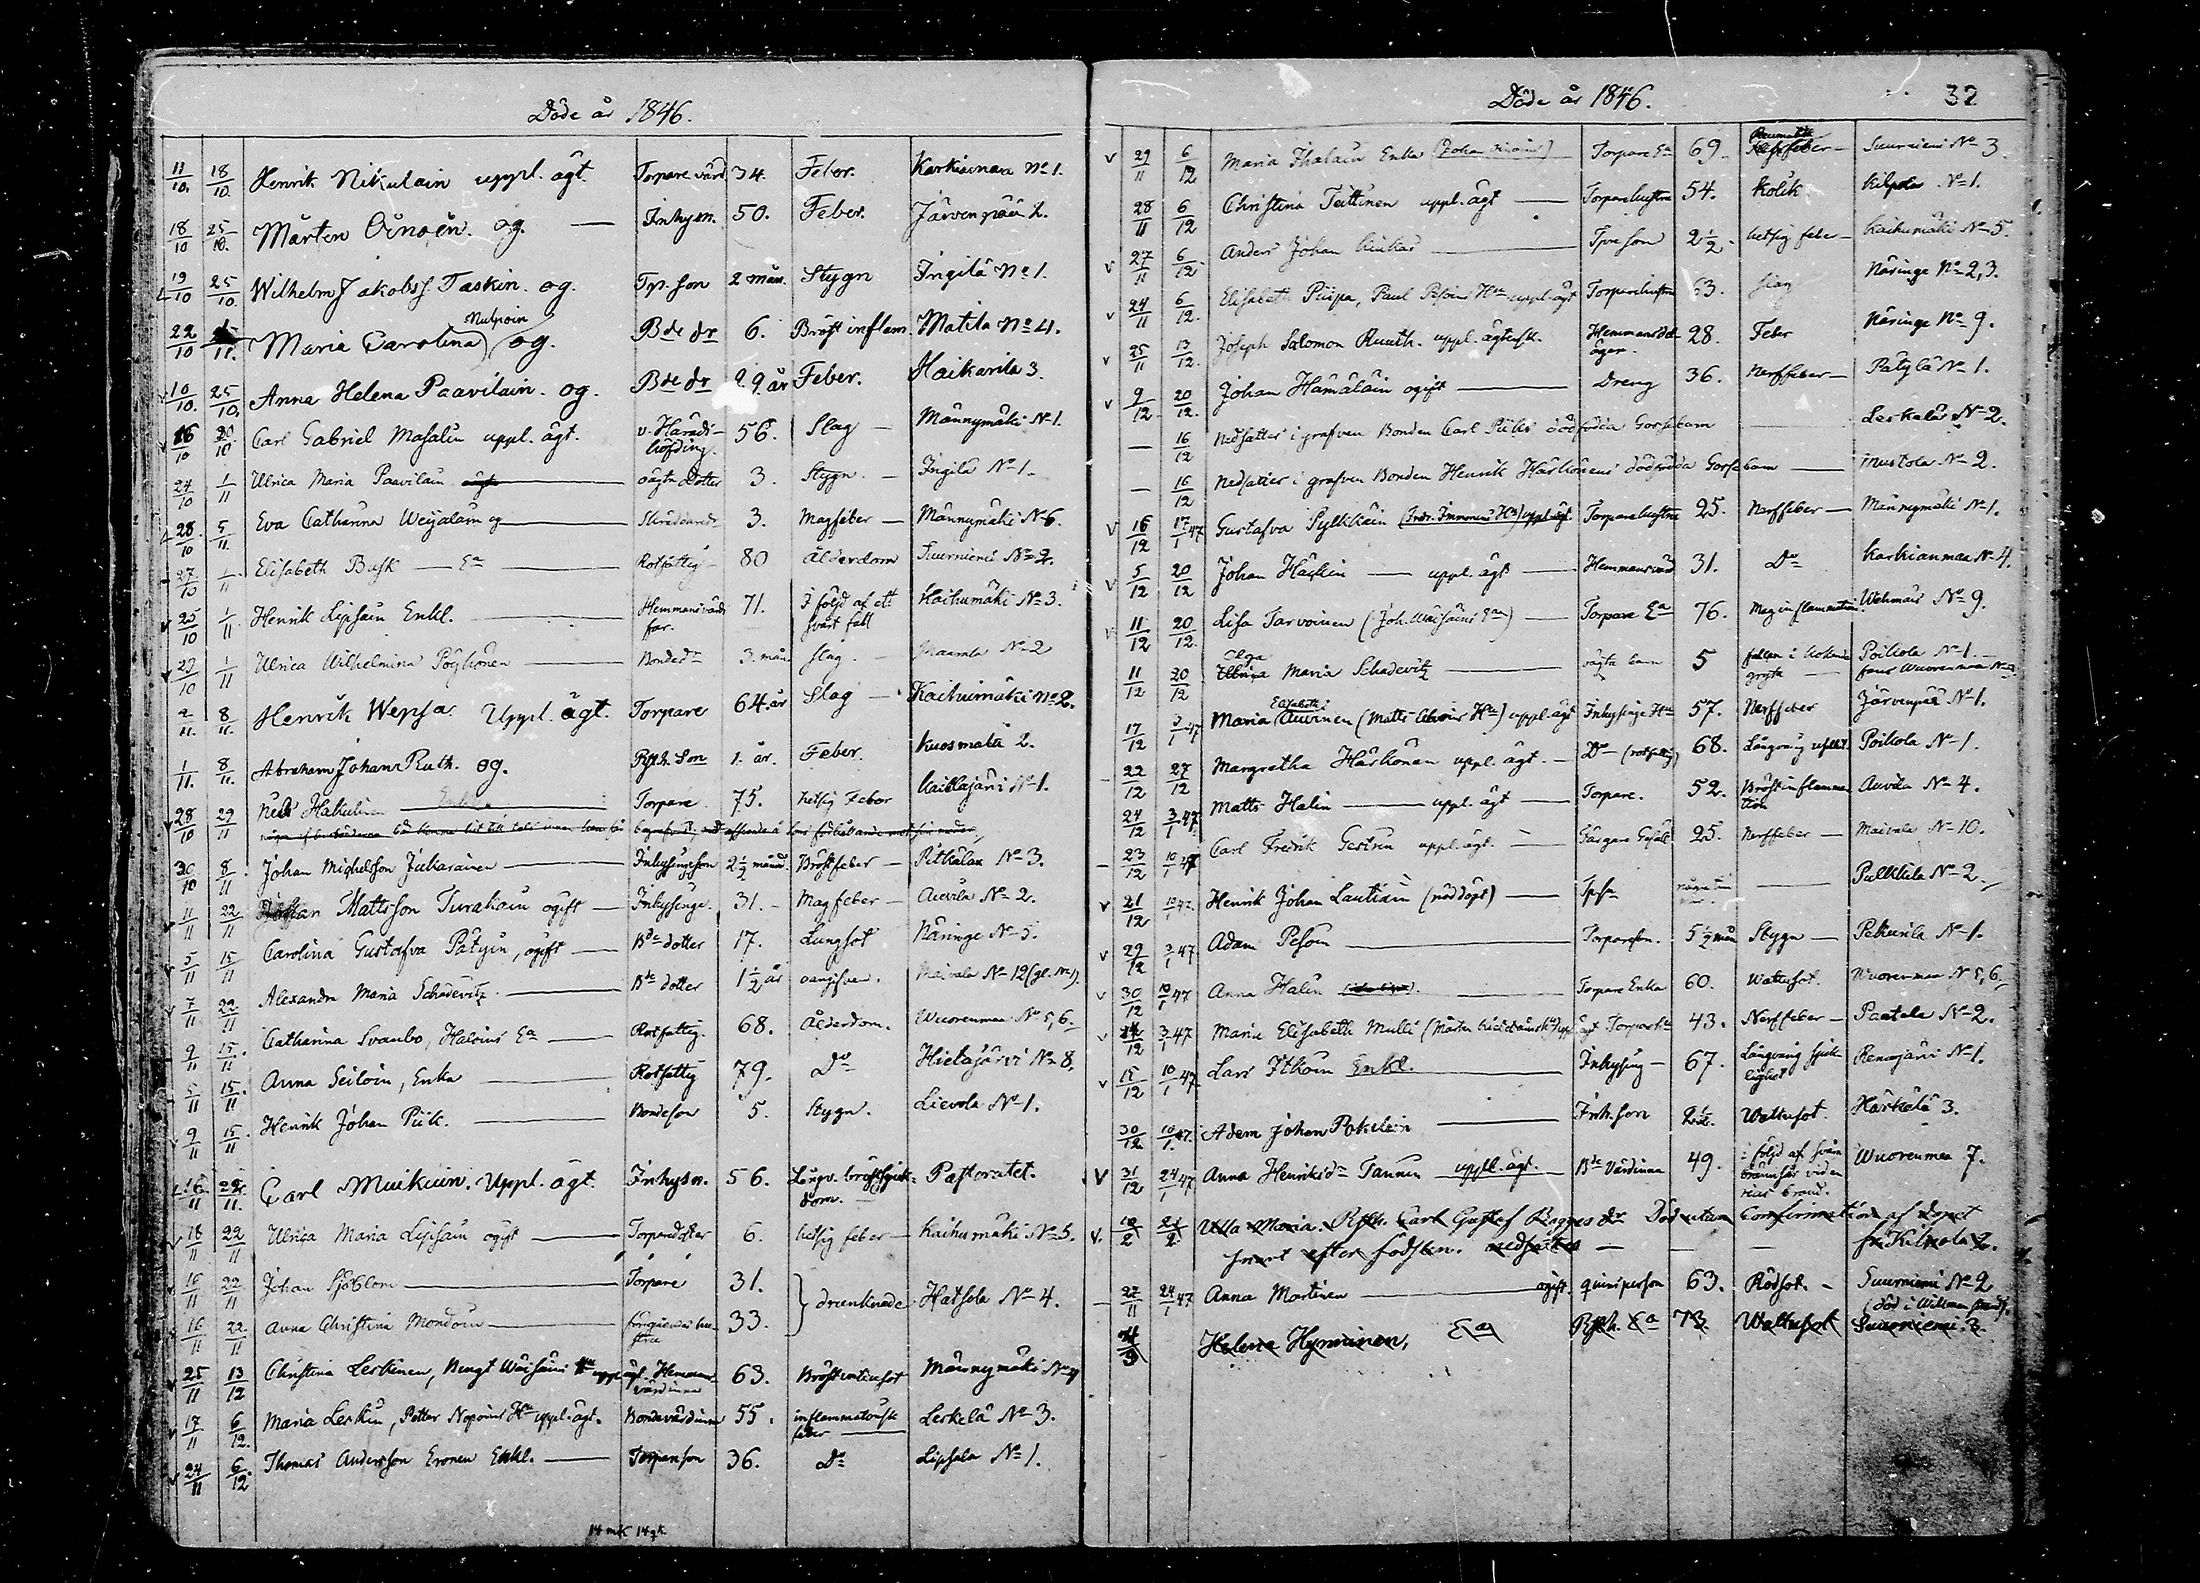 Döde år 1846.
11/10. 18/10. Henrik Nikulain uppl. ägt. Torpare värd 34. Feber. Karkiaman No 1.
18/10 25/10. Mårten Oinoin. og. — Inhysn. 50. Feber. Järvenpää 2.
19/10 25/10. Wilhelm Jakobsf Taskin. og. Trp. son 2 mån. Stygn Ingilä No 1.
Nulpoin
22/10 /11. Maria Carolina) og. Bde dr 6. Bröst inflam Matila No 4.
10/10. 25/10. Anna Helena Paavilain. og. Bde dr 9 år Feber. Haikarila 3.
16/10 20/10 Carl Gabriel Masalin uppl. ägt. v. Härads-höfding. 56. Slag — Männymäki No 1.
24/10 1/11 Ulrica Maria Paavilain oägta Dotter 3. Stygn. — Ingilä No 1.
28/10 5/11. Eva Catharina Weijalain og — 3. Magfeber — Männymäki No 6.
27/10 1/11 Elisabeth Bask — Ea — Rotfattig 80 Ålderdom Suurniemi No 2.
25/10 1/11. Henrik Lipsain Enkl. — Hemmansvärds far. 71. I följd af ett svårt fall Kaihumäki No 3.
29/10 1/11 Ulrica Wilhelmina Pöyhönen — Bonded. 3. mån. Slag. — Maanla No 2
2/11. 8/11. Henrik Wepsä. Uppl. ägt. Torpare 64. år Slag — Kaihumäki No 2.
1/11. 8/11. Abraham Johans Ruth. og. Rpth. Son 1. år. Feber. Kuosmala 2.
28/10 29/11 Nils Hakulin Torpare. 75. hetsig Feber Kaitajärvi No 1.
30/10 8/11 Johan Michelsson Jukarainen — Inhysingeson 2 1/2 månad. Bröstfeber — Pitkälax No 3.
11/11 22/11 Johan Mattsson Turakain ogift — Inhysinge. 31. — Magfeber — Auvila No 2.
5/11 15/11 Carolina Gustafva Pätyin, ogift — Bde dotter 17. Lungsot Näringe No 5.
7/11. 22/11 Alexandra Maria Schadevitz. — Bde dotter 1 1/2 år oangifven. Maivala No 12 (gl. No 1).
9/11 15/11. Catharina Svanbo, Haloins Ea — Rotfattig. 68. Ålderdom. Wuorenmaa No 5, 6.
5/11 15/11. Anna Seiloin, Enka — Rotfattig 79. Do Hietajärvi No 8.
9/11 15/11. Henrik Johan Piik. — Bondeson 5. Stygn. Lievola No 1.
16/11 22/11. Carl Muikuin. Uppl. ägt. Inhysn. 56. Långv. bröstsjuk-dom. Pastoratet.
18/11 22/11 Ulrica Maria Lipsain ogift — Torparedotter 6. hetsig feber — Kaihumäki No 5.
16/11 22/11 Johan Sjöblom — Torpare 31. } drunknade. Hatsola No 4.
16/11 22/11 Anna Christina Mondoin — föregåendes hustru 33.
25/11 13/12 Christina Leskinen, Bengt Wäisäins Hu uppl. ägt. Hemmansvärdinna 63. Männymäki No
17/11 6/12. Maria Leskin, Petter Nopoins Hu uppl. ägt. Bondevärdinna 55. inflammatorisk feber — Leskelä No 3.
24/11 6/12 Thomas Andersson Eronen Enkl. — Torpareson 36. Do Lipsala No 1.
14 mk 14 qk.
Döde år 1846. 32
29/11 6/12 Maria Ihalain Enka Torpare Ea 69. Suurniemi No 3.
28/11 6/12 Christina Teittinen uppl. ägt — Torparehustru 54. Kolik Kilpola No 1.
27/11 6/12. Anders Johan Kiukas — Tpe Son 2 1/2. hetsig feber — Kaihumäki No 5.
24/11 6/12. Elisabeth Piispa, Paul Pesoins Hu uppl. ägt Torparehustru 63. Slag Näringe No 2, 3.
25/11 13/12. Joseph Salomon Ruuth. uppl. äktensk. Hemmansdelägare. 28. Feber Näringe No 9.
9/12. 20/12. Johan Hämäläin ogift — Dreng 36. Nerffeber — Pätylä No 1.
— 16/12 Nedsattes i grafven Bonden Carl Piiks dödfödda Gossebarn — Leskelä No 2.
— 16/12 Nedsattes i grafven Bonden Henrik Härkönens dödfödda Gossebarn — Inustola No 2.
16/12 17/1 47 Gustafva Pylkkäin uppl. ägt. Torparehustru 25. Nerffeber — Männymäki No 1.
5/12 20/12 Johan Häskin — uppl. ägt — 31. Do Karkianmaa No 4.
11/12 20/12. Lisa Tarvoinen (Joh. Wäisäins Ea) — Torpare Ea 76. Maginflammation. Wehmais No 9.
Olga
11/12 20/12 Ulrica Maria Schadevitz — oägta barn 5 fallen i kokande gryta — Poikola No 1. —
Elisabeth
17/12 3/1 47 Maria Auvinen uppl. ägt Inhysinge Hu 57. Nerffeber Järvenpää No 1.
22/12 27/12 Margretha Härkönen uppl. ägt. — Do (rotfattig) 68. Poikola No 1.
24/12 3/1 47. Matts Halin — uppl. ägt — Torpare. 52. Bröstinflammation Auvila No 4.
23/12 10/1 47 Carl Fredrik Gestrin uppl. ägt. — 25. Nerffeber — Maivala No 10.
21/12 10/1 47. Henrik Johan Lautiain (nöddöpt) — Tpson — Pulkkila No 2.
29/12 3/1 47 Adam Pesoin — Torpareson. 5 1/2 mån Stygn — Pekurila No 1.
30/12 10/1 47 Anna Halin — Torpare Enka 60. Wattusot. Wuorenmaa No 5, 6.
3/1 47 Maria Elisabeth Mulli uppl. ägt Torpare Hu 43. Nerffeber — Paatela No 2.
15/12 10/1 47 Lars Itkoin Enkl. — Inhysing — 67. Långvarig sjuklighet Remojärvi No 1.
30/12 10/1 47. Adam Johan Pokelin — Inh. son 2 1/2. Wattusot. Härkälä 3.
31/12 24/1 47 Anna Henriksdr Tannin uppl. ägt. Bde Värdinna 49. i följd af svåra brännsår vid en rias brand. Wuorenmaa 7.
Ulla Maria. Rpth. Carl Gustaf Bagges dr Död utan Confirmation af dopet
snart efter födsten. nedsattes — — — fr. Kilpola 2.
27/11 24/1 47 Anna Martinen — ogift. qvinsperson 63. Rödsot. — Suurniemi No 2
(död i Willman strand).
Helena Hyrninen, Ea Rpth. Ea 73. Wattusot Suurniemi 3.